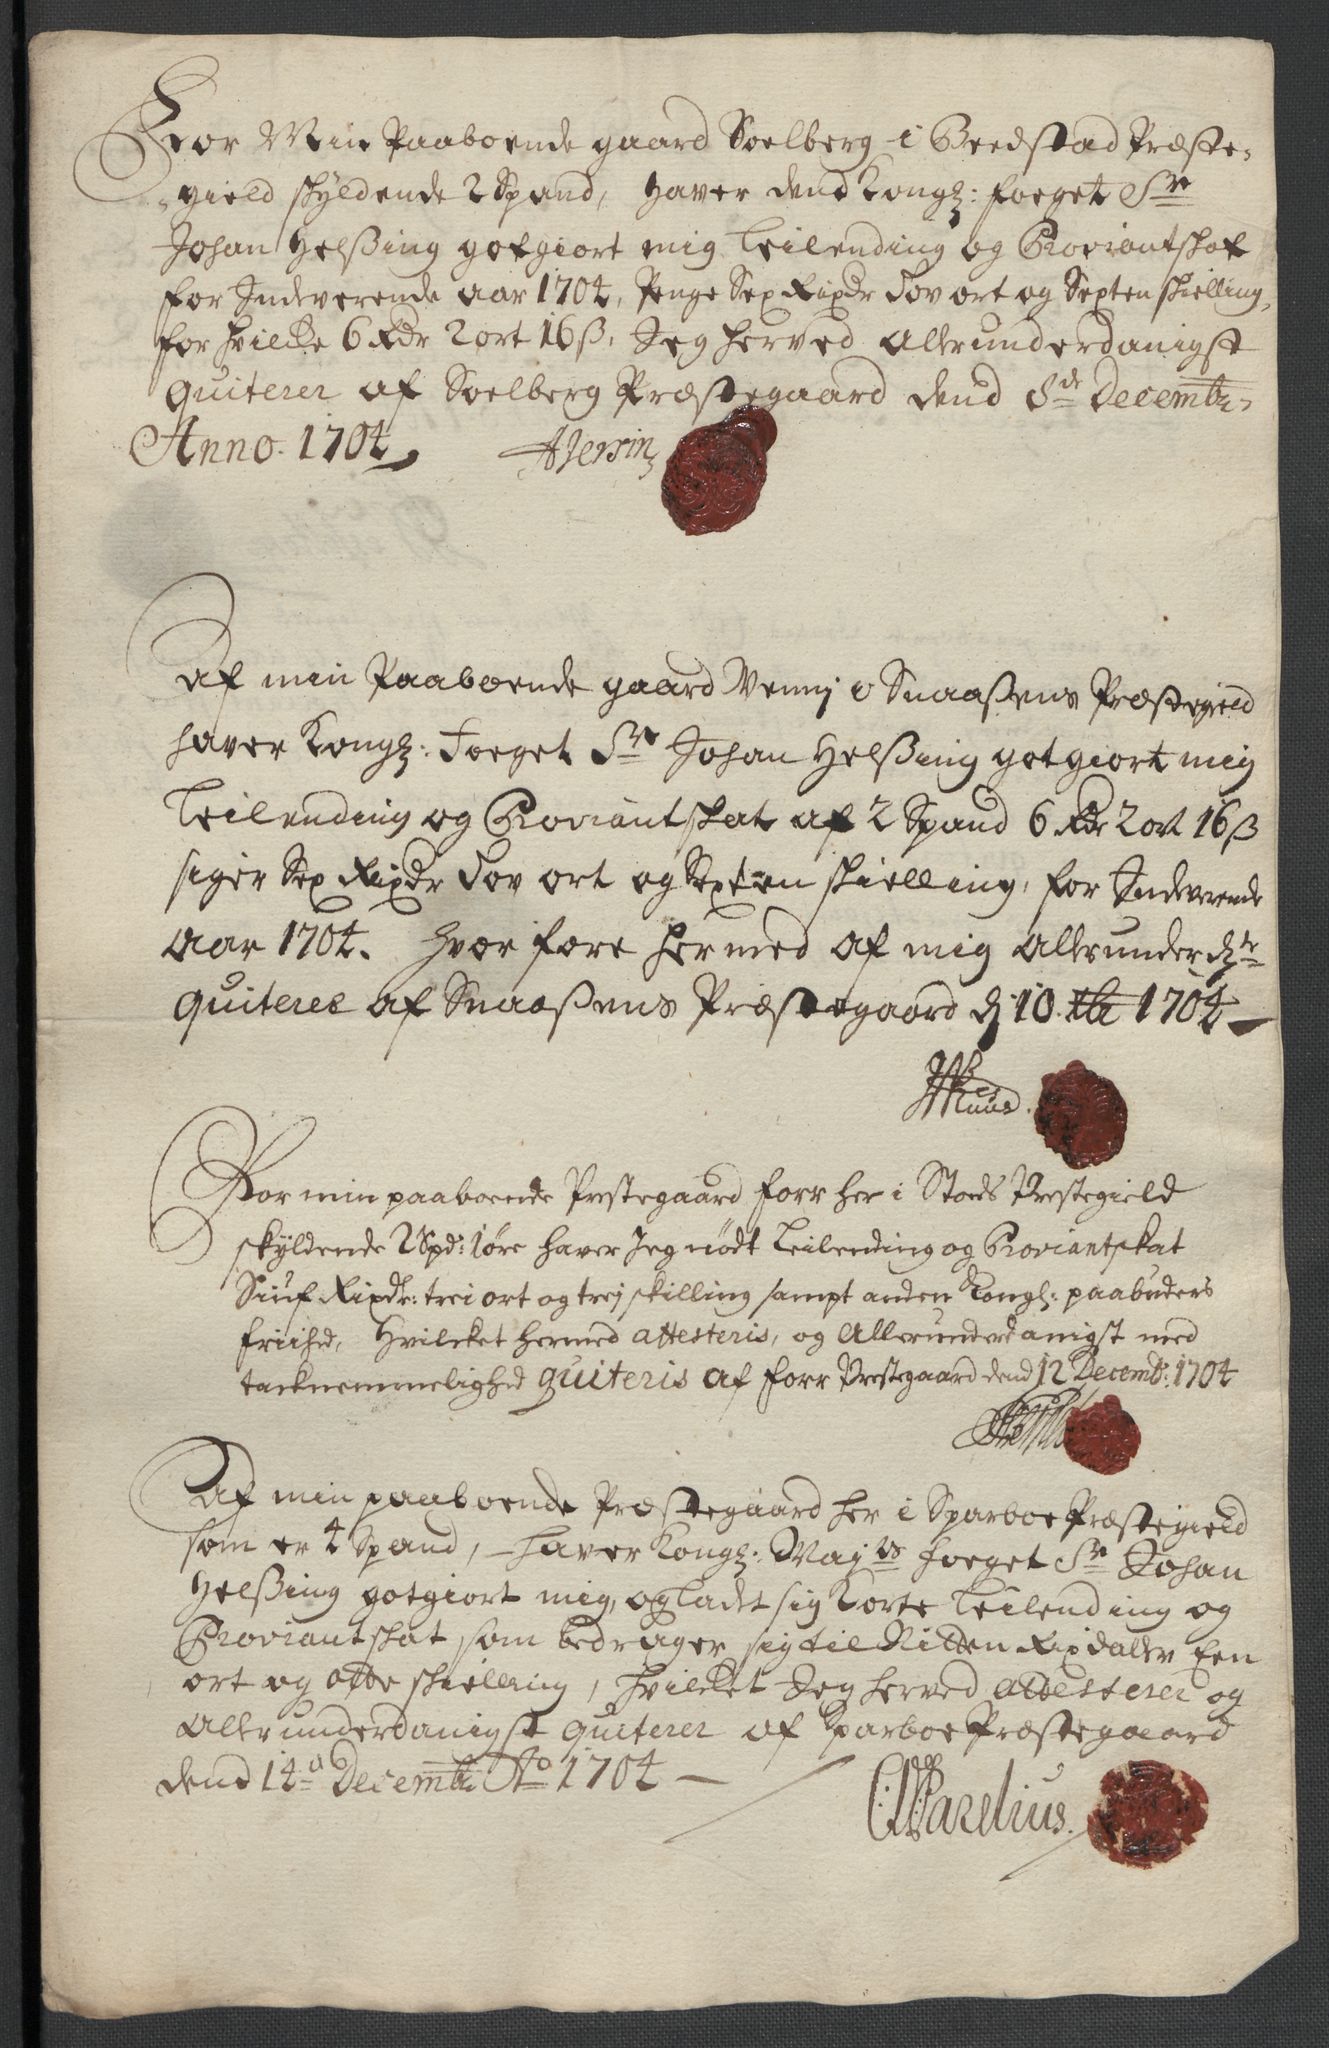 For Min Paaboende gaard Soelberg i Beedstad Præste-
gield skyldende 2 Spand, haver dend Kongl: foeget Sr
Johan Helßing gotgiort mig Leilending og Proviantskat
for Indeverende aar 1704, Penge Sex Rixdr Tov ort og Sexten skielling,
for hvilcke 6 Rdr 2 ort 16 ß, Jeg herved Allerunderdanigst
quiterer af Soelberg Præstegaard dend 8de Decembr
Anno. 1704
Af min Paaboende gaard Vemy i Snaaßens Præstegield
haver Kongl: Foeget Sr Johan Helßing gotgiort mig
Leilending og Proviantskat af 2 Spand 6 Rdr 2 ort 16 ß
siger Sex Rixdr Tov ort og Sexten skielling, for Indeverende
aar 1704. Hvor fore hermed af mig Allerunderdste
quiteres af Snaaßens Præstegaard d 10. Xbr 1704
For min paaboende Prestegaard forr her i Stods Prestegield
skyldende 2 Spd: 1 øre haver Jeg nødt Leilending og Proviantskat
Siuf Rixdr: trei ort og trej skilling sampt anden Kongl: paabuders
friihed, Hvilcket hermed attesteris, og Allerunderdanigst med
tacknemmelighed quiteris af forr Prestegaard dend 12 Decemb: 1704
Af min paaboende Præstegaard her i Sparboe Præstegield
som er 4 Spand, haver Kongl: Mayts foeget Sr Johan
Helßing gotgiort mig, og ladet sig korte Leilending og
Proviantskat som bedrager sig til Nitten Rixdaler Een
ort og otte skielling, hvilcket Jeg herved attesterer og
Allerunderdanigst quiterer af Sparboe Præstegaard
dend 14d Decembr Ao 1704
Parelius.